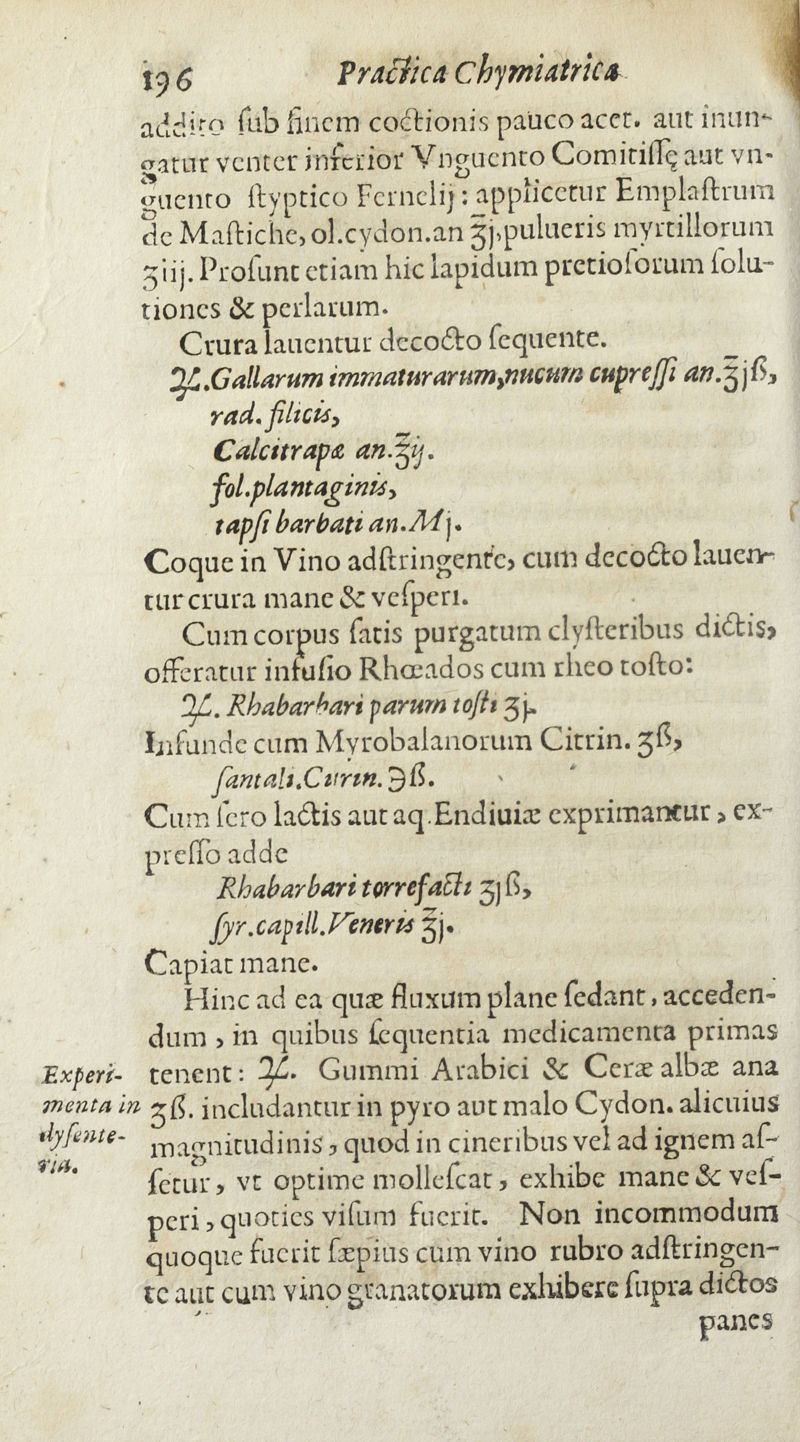 196 Practica Chymiatrica
addito ſub finem coctionis pauco acet. aut inun-
gatur venter inferior Vnguento Comitiſſę aut vn-
guento ſtyptico Fernelij: applicetur Emplaſtrum
de Maſtiche, ol.cydon.an ℥j,pulueris myrtillorum
ʒiij. Proſunt etiam hic lapidum pretioſorum ſolu-
tiones & perlarum.
Crura lauentur decocto ſequente.
♃.Gallarum immaturarum,nucum cupreſſi an.℥jß,
rad. filicis,
Calcitrapæ an.℥ij.
fol.plantaginis,
tapſi barbati an.Mj.
Coque in Vino adſtringente, cum decocto lauen-
tur crura mane & veſperi.
Cum corpus ſatis purgatum clyſteribus dictis,
offeratur infuſio Rhœados cum rheo toſto:
♃. Rhabarbari parum toſti ʒj.
Infunde cum Myrobalanorum Citrin. ʒß,
ſantali.Citrin.℈ß.
Cum ſero lactis aut aq.Endiuiæ exprimantur, ex-
preſſo adde
Rhabarbari torrefacti ʒjß,
ſyr.capill.Veneris ℥j.
Capiat mane.
Hinc ad ea quæ fluxum plane ſedant, acceden-
dum, in quibus ſequentia medicamenta primas
Experi- tenent: ♃. Gummi Arabici & Ceræ albæ ana
menta in ʒß. includantur in pyro aut malo Cydon. alicuius
dyſente- magnitudinis, quod in cineribus vel ad ignem aſ-
ria. ſetur, vt optime molleſcat, exhibe mane & veſ-
peri, quoties viſum fuerit. Non incommodum
quoque fuerit ſæpius cum vino rubro adſtringen-
te aut cum vino granatorum exhibere ſupra dictos
panes